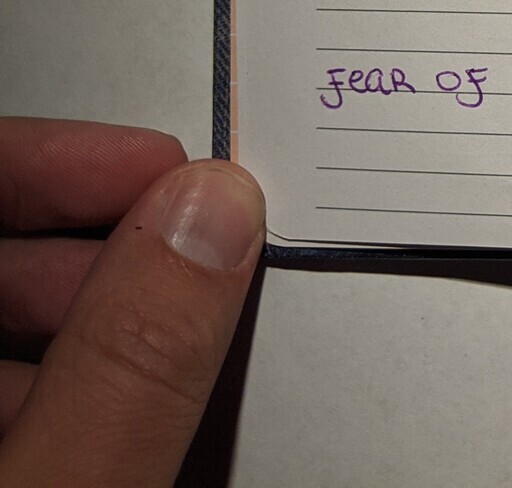 FeaR OF